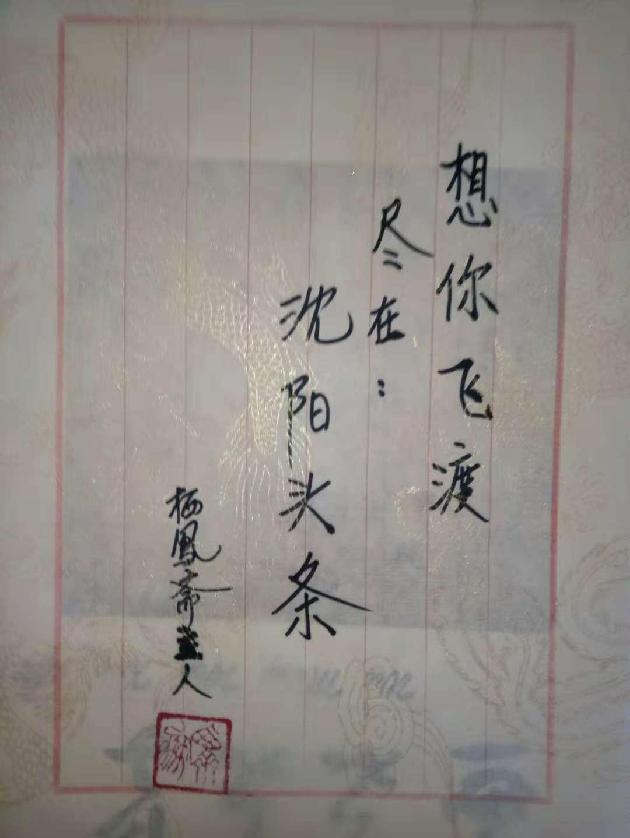 想你飞渡
尽在：
沈阳头条
栖凤斋主人